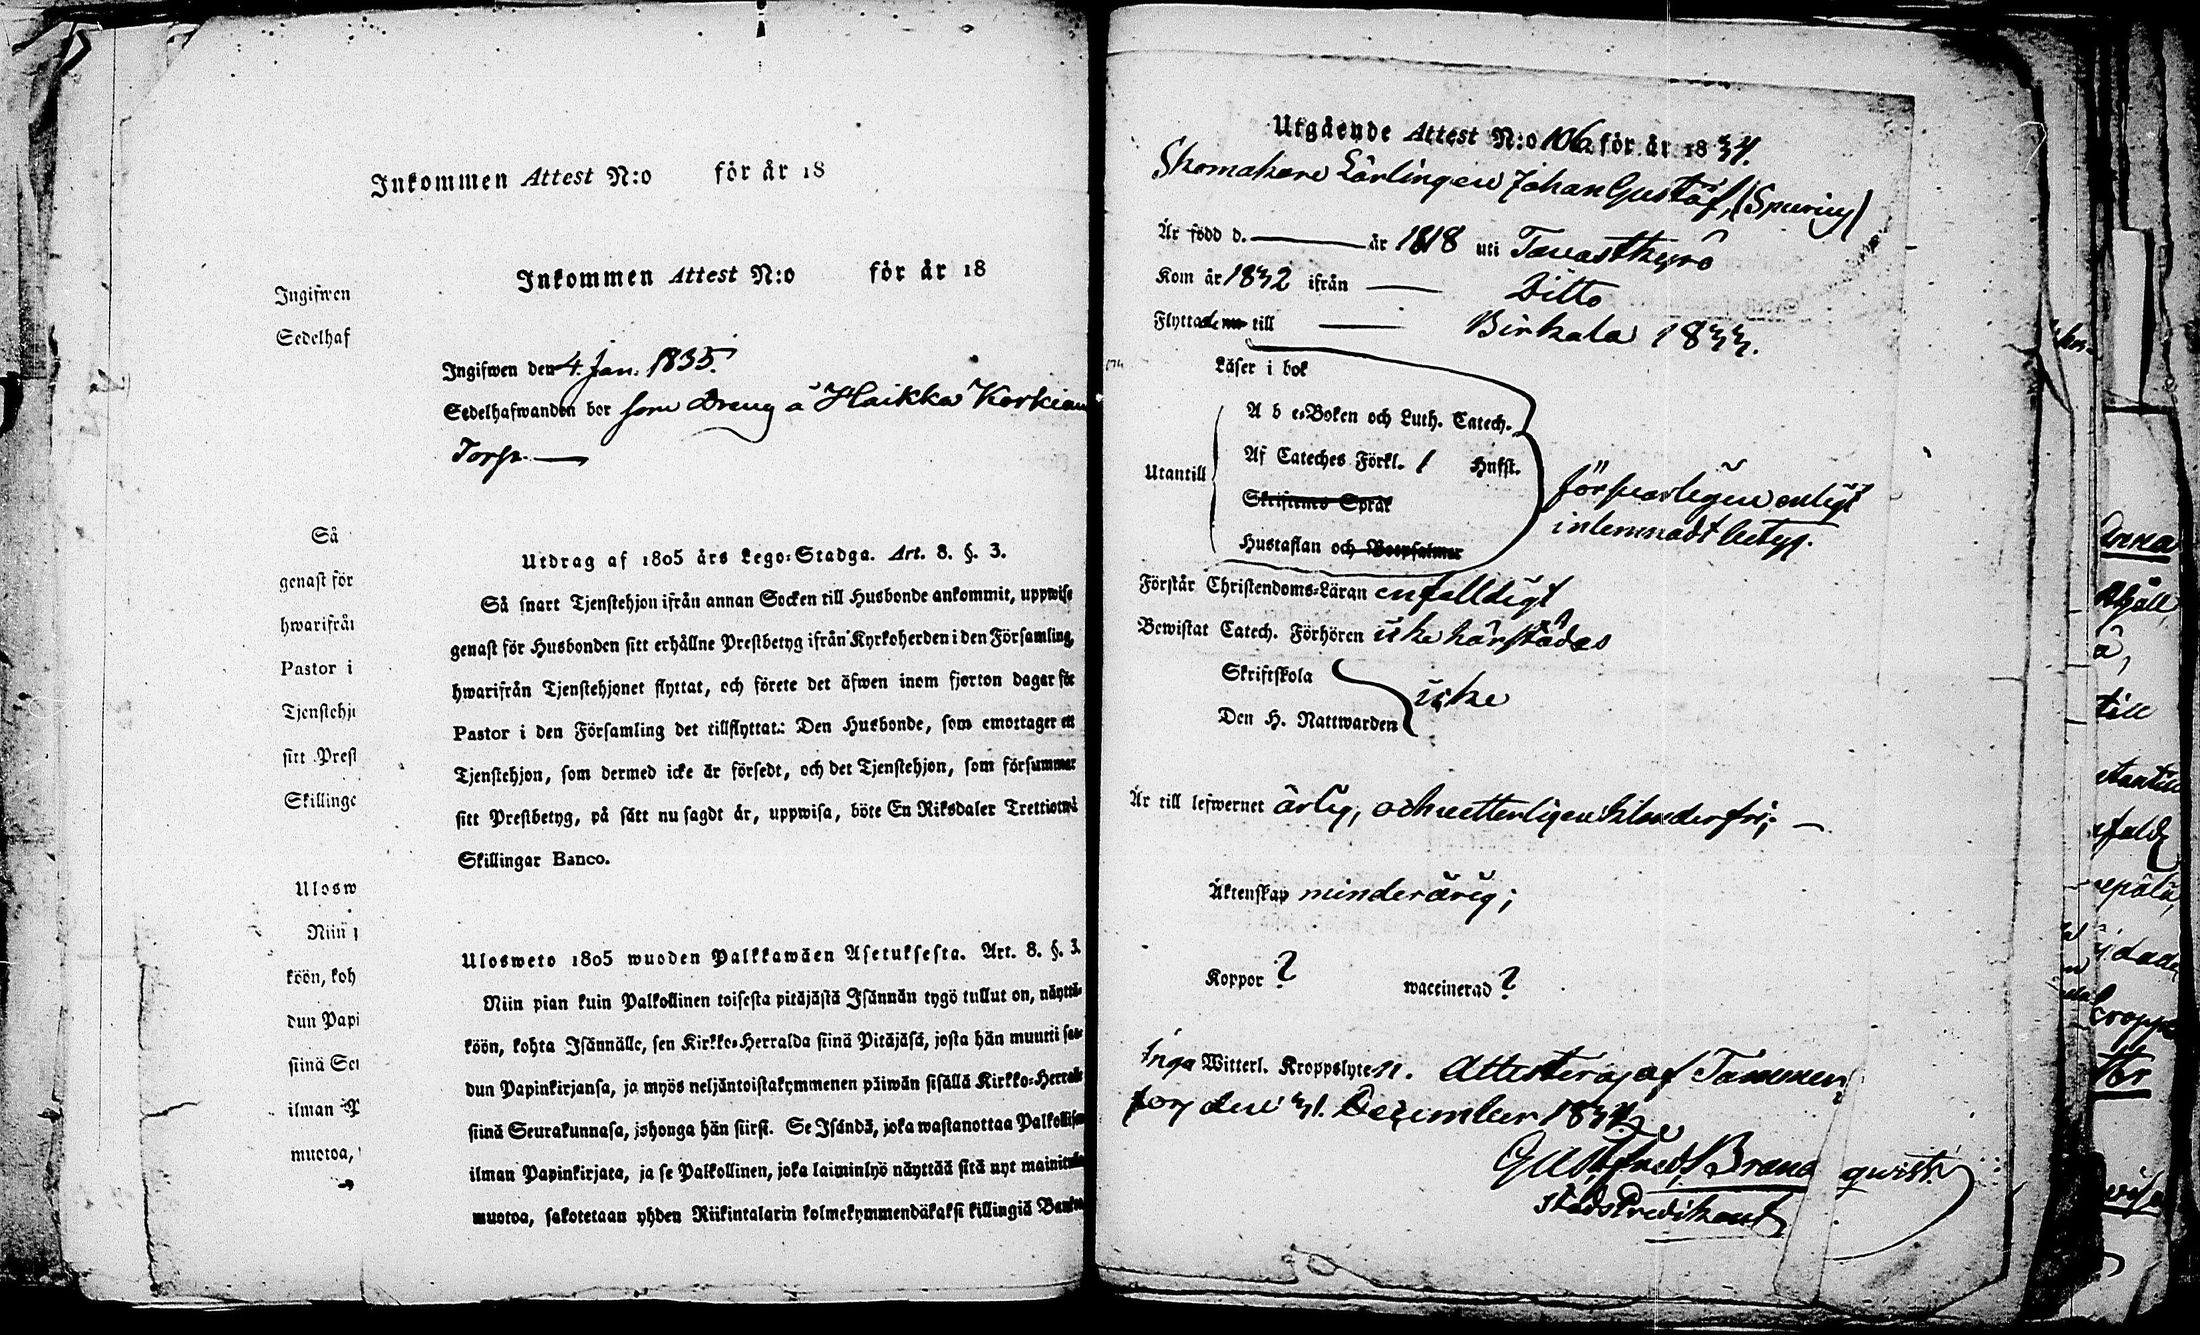 Inkommen Attest N:o för år 18
Inkommen Attest N:o för år 18
Ingifwen
Sedelhaf
Ingifwen den 4. Jan. 1835.
Sedelhafwanden bor som Dreng å Haikka Korkian
Torp.
Så
genast för
hwarifrån
Pastor i
Tjenstehj
sitt Prest
Skillinge
Ulosw
Niin p
köön, koh
dun Papi
siinä Seu
ilman P
muotoa,
Utdrag af 1805 års Lego-Stadga. Art. 8. §. 3.
Så snart Tjenstehjon ifrån annan Socken till Husbonde ankommit, uppwise
genast för Husbonden sitt erhållne Prestbetyg ifrån Kyrkoherden i den Församling,
hwarifrån Tjenstehjonet flyttat, och förete det äfwen inom fjorton dagar för
Pastor i den Församling det tillflyttat: Den Husbonde, som emottager ett
Tjenstehjon, som dermed icke är försedt, och det Tjenstehjon, som försummar
sitt Prestbetyg, på sätt nu sagdt är, uppwisa, böte En Riksdaler Trettiotwå
Skillingar Banco.
Ulosweto 1805 wuoden Palkkawäen Asetuksesta. Art. 8. §. 3.
Niin pian kuin Palkollinen toisesta pitäjästä Isännän tygö tullut on, näyttä-
köön, kohta Isännälle, sen Kirkko-Herralda siinä Pitäjäsä, josta hän muutti saa-
dun Papinkirjansa, ja myös neljäntoistakymmenen päiwän sisällä Kirkko-Herralle
siinä Seurakunnasa, johonga hän siirsi. Se Isändä, joka wastanottaa Palkollisen
ilman Papinkirjata, ja se Palkollinen, joka laiminlyö näyttää sitä nyt mainitulla
muotoa, sakotetaan yhden Riikintalarin kolmekymmendäkaksi killingiä Bankos
Utgående Attest N:o 106 för år 1834.
Skomakare Lärlingen Johan Gustaf, (Spurius)
Är född d. år 1818 uti Tavastkyro
Kom år 1832 ifrån Ditto
Flyttade nu till Birkala 1833.
Läser i bok
A b c-Boken och Luth. Catech.
Utantill Af Cateches Förkl. 1 Hufst.
Skriftenes Språk
Hustaflan och Botpsalmer
försvarligen enligt
inlemnadt betyg.
Förstår Christendoms-Läran enfalldigt
Bewistat Catech. Förhören icke härstädes
Skriftskola
icke
Den H. Nattwarden
Är till lefwernet ärlig, och vetterligen klanderfri;
Äktenskap minderårig;
Koppor ? waccinerad ?
Inga Witterl. Kroppslyten. Attesteras af Tammer-
fors den 31. December 1834.
Brandqvist.
Stadspredikant
Anna
till